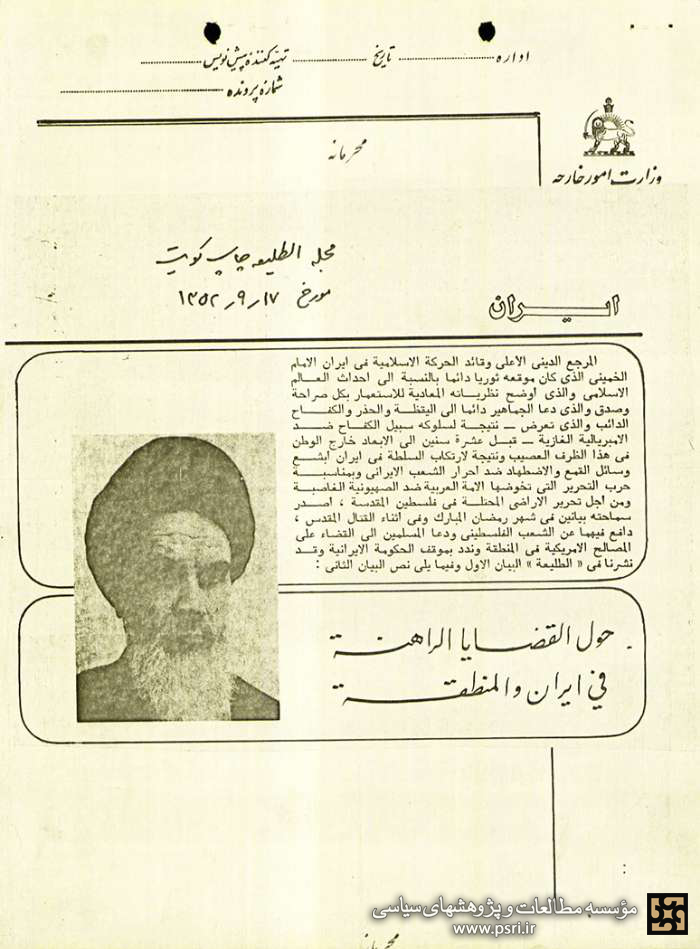 اداره ............ تاریخ ............ تهیه کننده پیش نویس ............
شماره پرونده ............
وزارت امور خارجه
محرمانه
مجله الطلیعه چاپ کویت
مورخ ۱۷ر۹ر۱۳۵۲
ایـــران
المرجع الدينى الاعلى وقائد الحركة الاسلامية فى ايران الامام
الخمينى الذى كان موقعه ثوريا دائما بالنسبة الى احداث العـالم
الاسلامى والذى اوضح نظرياته المعادية للاستعمار بكل صراحة
وصدق والذى دعا الجماهير دائما الى اليقظة والحذر والكفاح
الدائب والذى تعرض ــ نتيجة لسلوكه سبيل الكفاح ضــد
الامبريالية الغازية ــ قبل عشرة سنين الى الابعاد خارج الوطن
فى هذا الظرف العصيب ونتيجة لارتكاب السلطة فى ايران ابشع
وسائل القمع والاضطهاد ضد احرار الشعب الايرانى وبمناسبـة
حرب التحرير التى تخوضها الامة العربية ضد الصهيونية الغاصبة
ومن اجل تحرير الاراضى المحتلة فى فلسطين المقدسة ، اصـدر
سماحته بيانين فى شهر رمضان المبارك وفى اثناء القتال المقدس ،
دافع فيهما عن الشعب الفلسطينى ودعا المسلمين الى القضاء على
المصالح الامريكية فى المنطقة وندد بموقف الحكومة الايرانية وقـد
نشرنا فى « الطليعة » البيان الاول وفيما يلى نص البيان الثانى :
حول القضــايا الراهنــة
في ايران والمنطقــة
محرمانه
مؤسسه مطالعات و پژوهشهای سیاسی
www.psri.ir